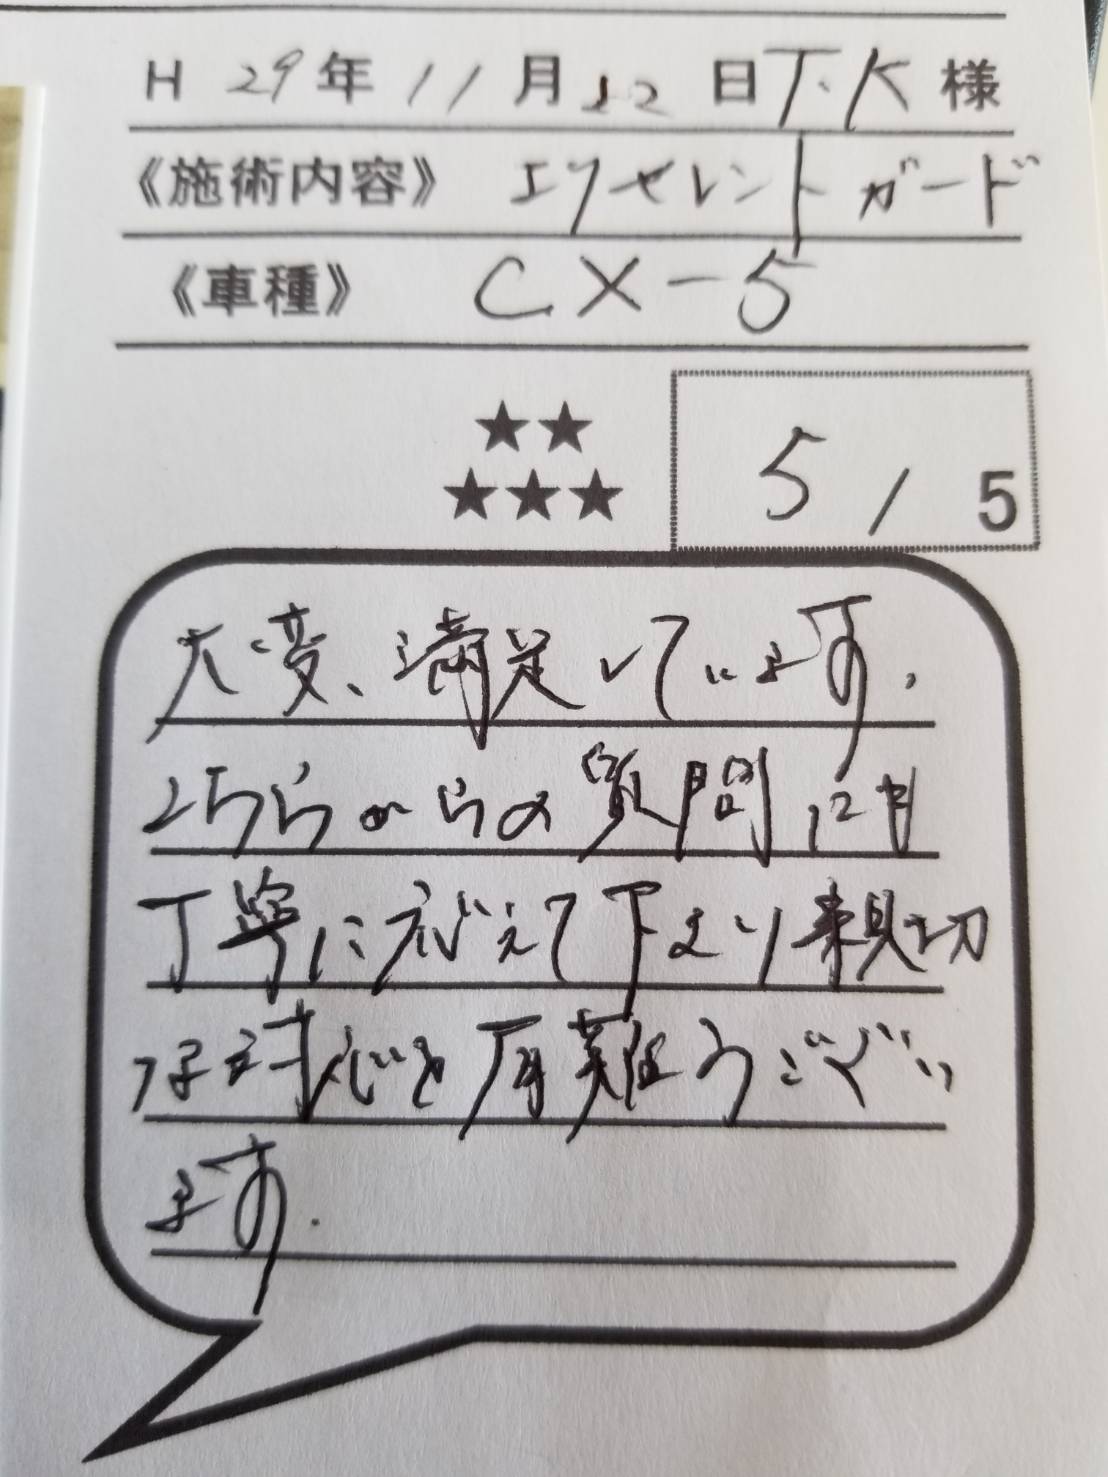 H 29年 11月 22日 T.K 様
《施術内容》 エクセレントガード
《車種》 CX-5
★★
★★★
5/5
大変、満足しています。
こちらからの質問にも
丁寧に応えて下さり親切
な対応を有難うござい
ます.